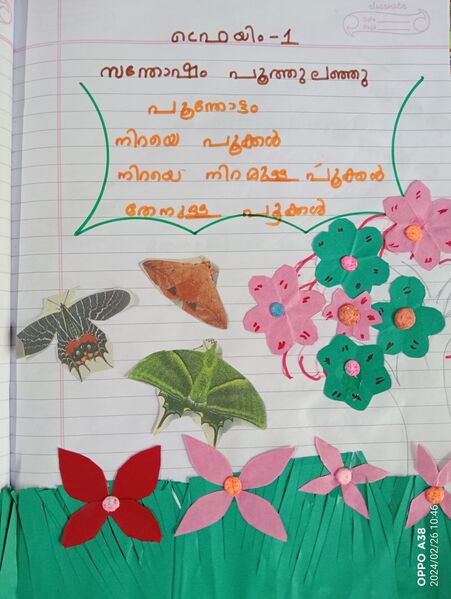 classmate
Date
Page
ഫ്രെയിം -1
സന്തോഷം പൂത്തുലഞ്ഞു
പൂന്തോട്ടം
നിറയെ പൂക്കൾ
നിറയെ നിറമുള്ള പൂക്കൾ
തേനുള്ള പൂക്കൾ
OPPO A38
2024/02/26 10:46